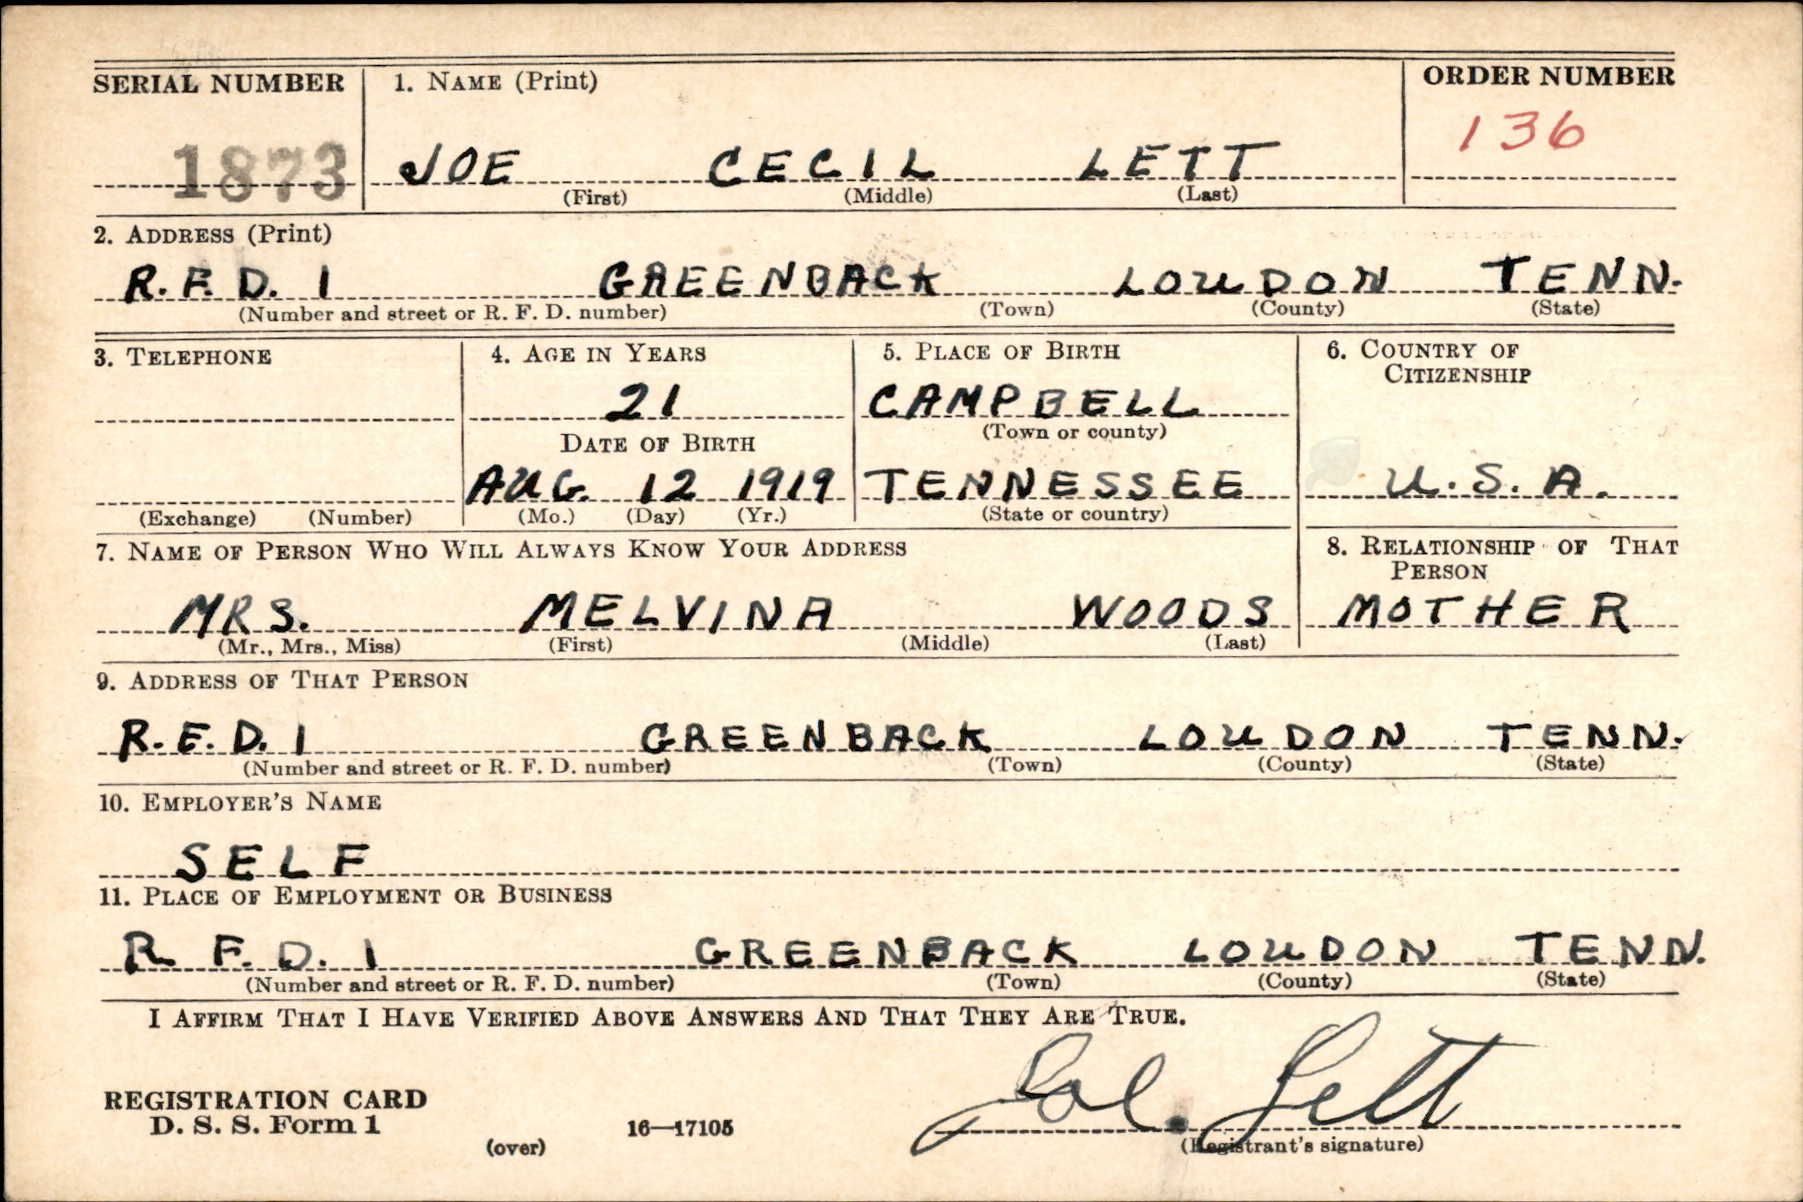 SERIAL NUMBER 1. NAME (Print) ORDER NUMBER
1873 JOE CECIL LETT 136
(First) (Middle) (Last)
2. ADDRESS (Print)
R.F.D. 1 GREENBACK LOUDON TENN.
(Number and street or R. F. D. number) (Town) (County) (State)
3. TELEPHONE 4. AGE IN YEARS 5. PLACE OF BIRTH 6. COUNTRY OF CITIZENSHIP
21 CAMPBELL
(Town or county)
DATE OF BIRTH
AUG. 12 1919 TENNESSEE U.S.A.
(Exchange) (Number) (Mo.) (Day) (Yr.) (State or country)
7. NAME OF PERSON WHO WILL ALWAYS KNOW YOUR ADDRESS 8. RELATIONSHIP OF THAT PERSON
MRS. MELVINA WOODS MOTHER
(Mr., Mrs., Miss) (First) (Middle) (Last)
9. ADDRESS OF THAT PERSON
R.F.D. 1 GREENBACK LOUDON TENN.
(Number and street or R. F. D. number) (Town) (County) (State)
10. EMPLOYER'S NAME
SELF
11. PLACE OF EMPLOYMENT OR BUSINESS
R F.D. 1 GREENBACK LOUDON TENN.
(Number and street or R. F. D. number) (Town) (County) (State)
I AFFIRM THAT I HAVE VERIFIED ABOVE ANSWERS AND THAT THEY ARE TRUE.
Joe. Lett
REGISTRATION CARD
D. S. S. Form 1 16—17105 (Registrant's signature)
(over)